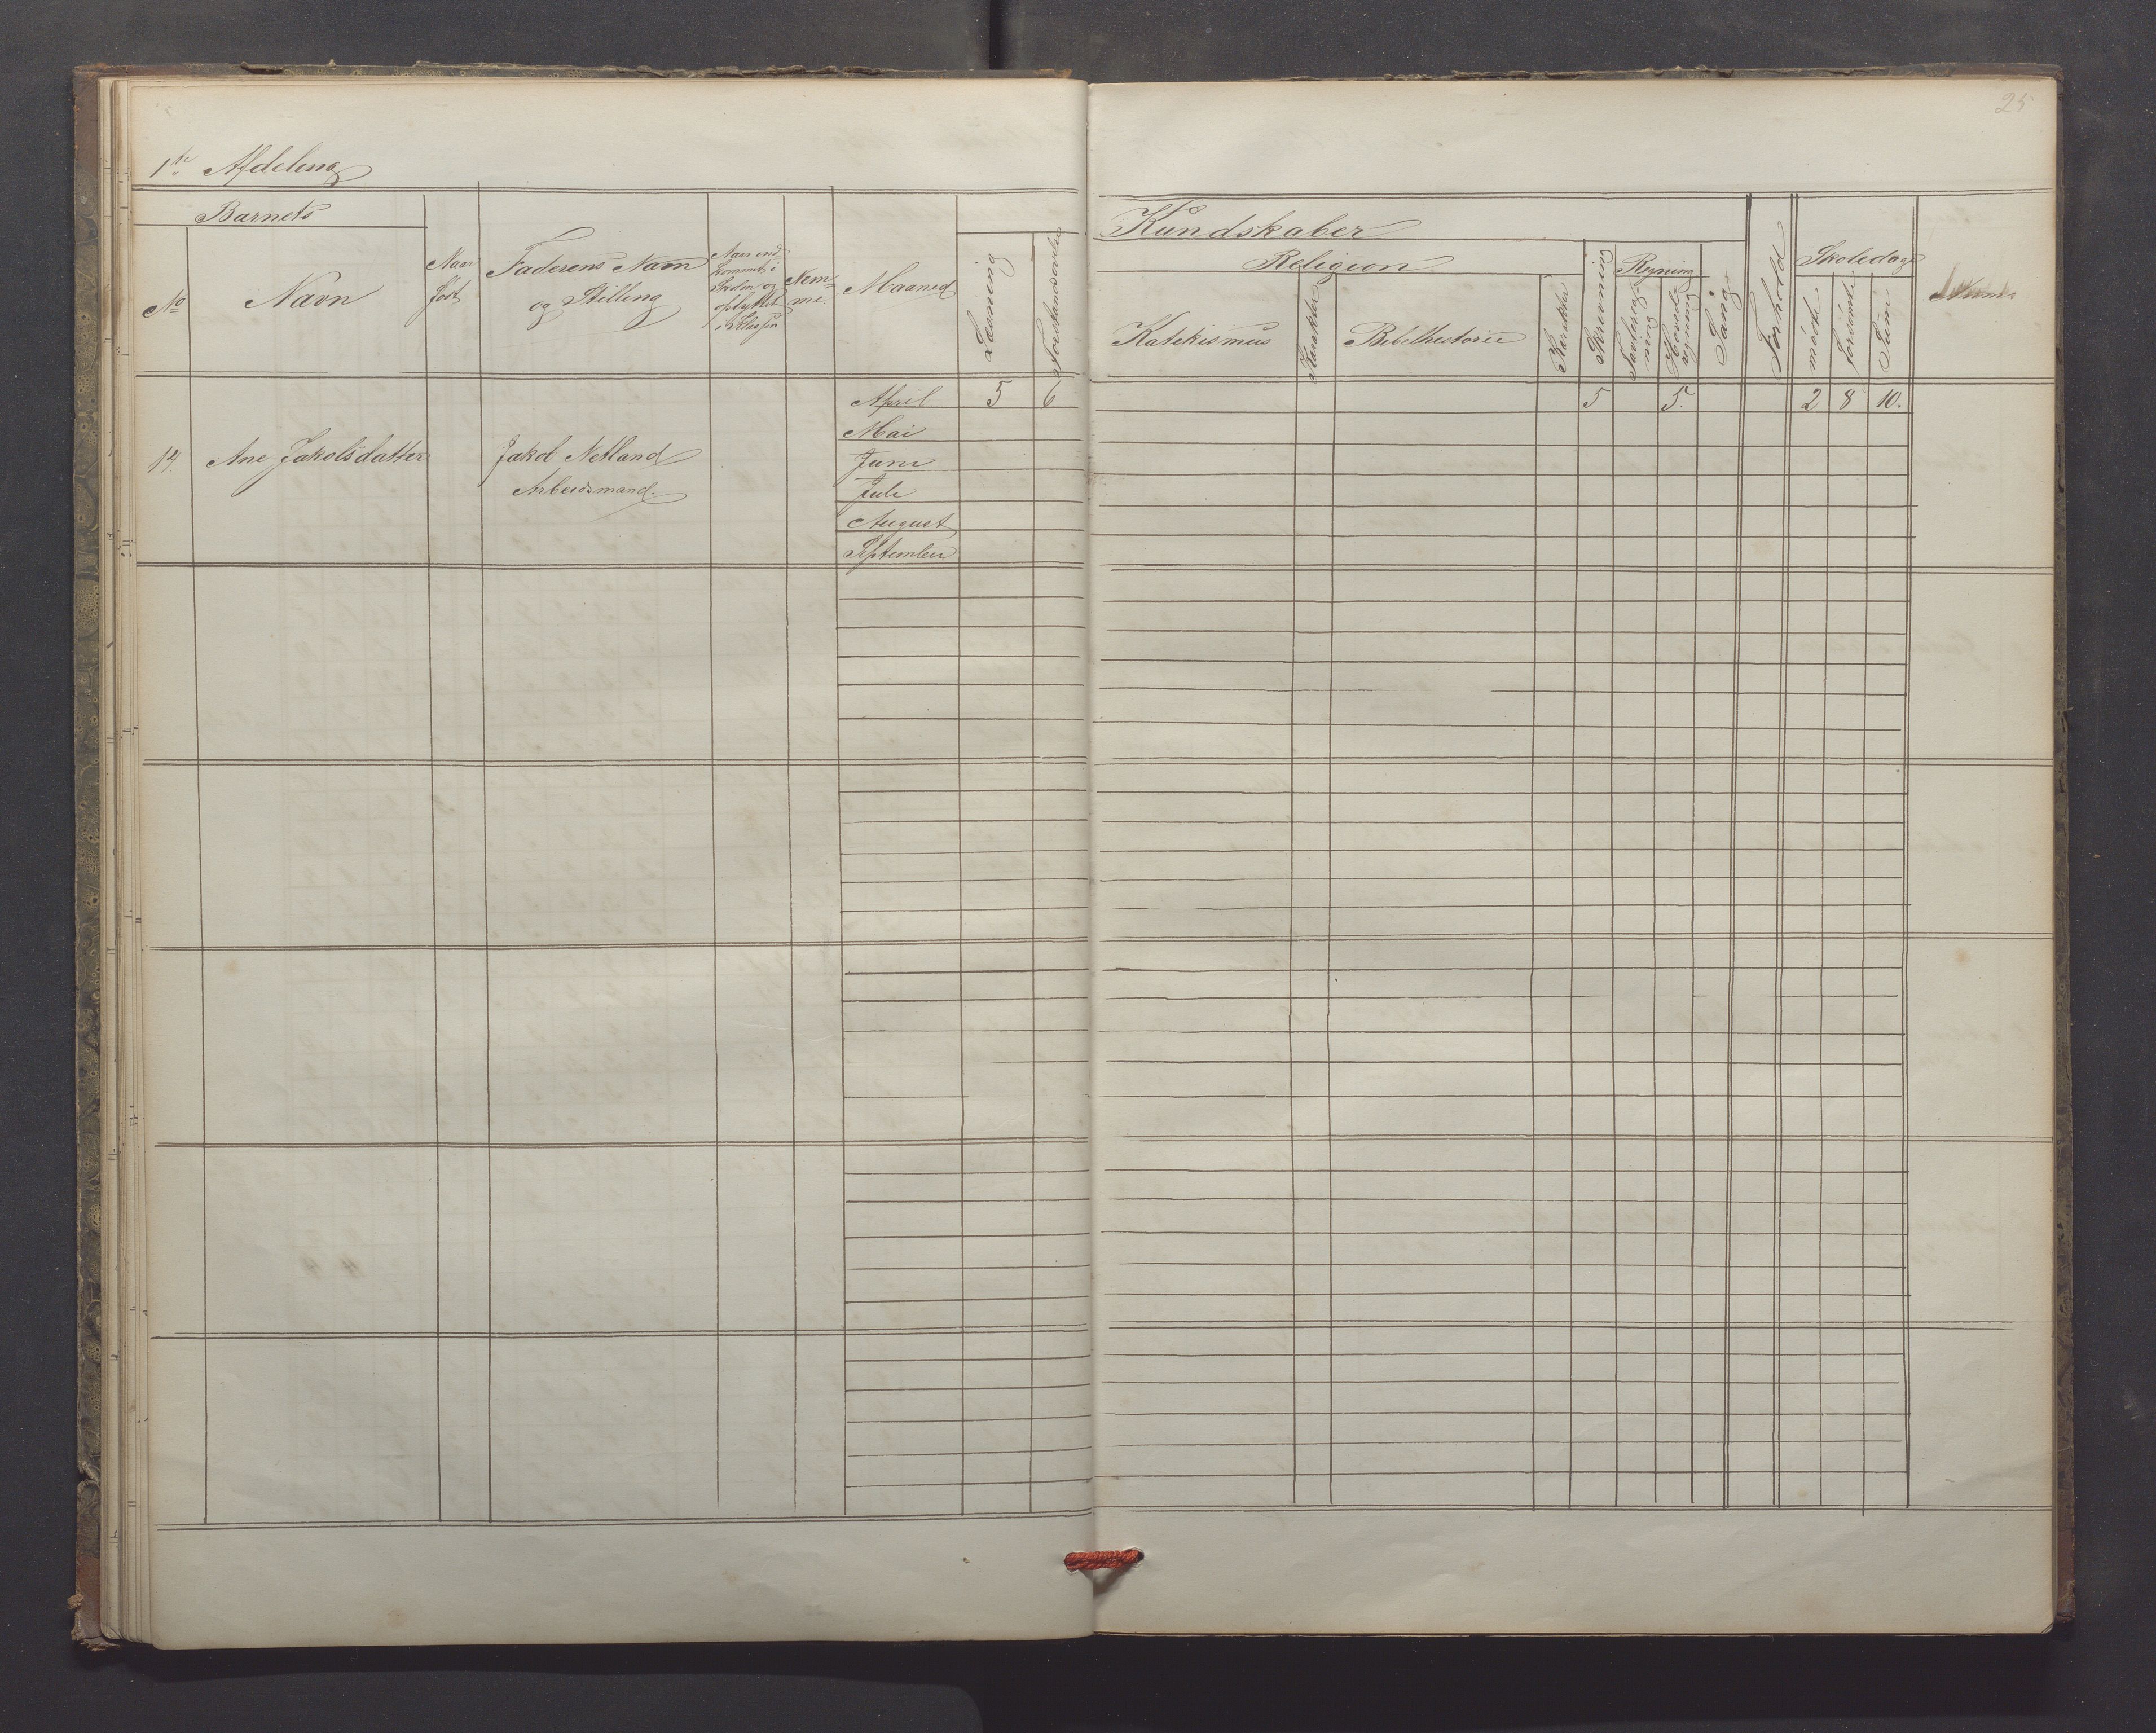 25
1ste Afdeling
Barnets
No
Navn
Naar
født
Faderens Navn
og Stilling
Naar ind-
kommet i
Skolen og
opflyttet
i Klassen
Nem-
me
Maaned
Læsning
Forstandsøvelse
Kundskaber
Religion
Katekismus
Karakter
Bibelhistorie
Karakter
Skrivning
Regning
Tavlereg-
ning
Hoved-
regning
Sang
Forhold
Skoledage
mødt
forsømt
Sum
April 5 6 5 5. 2 8 10.
Mai
14. Ane Jakobsdatter Jakob Netland Juni
Arbeidsmand. Juli
August
September